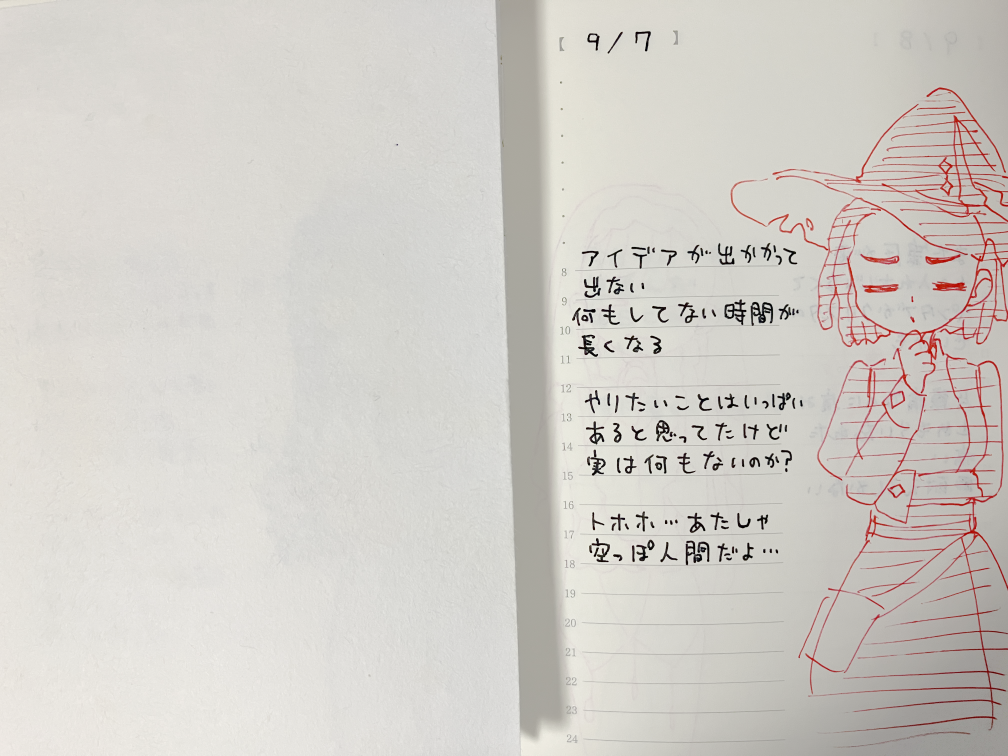 【 9/7 】
アイデアが出かかって
出ない
何もしてない時間が
長くなる
やりたいことはいっぱい
あると思ってたけど
実は何もないのか?
トホホ…あたしゃ
空っぽ人間だよ…
8
9
10
11
12
13
14
15
16
17
18
19
20
21
22
23
24